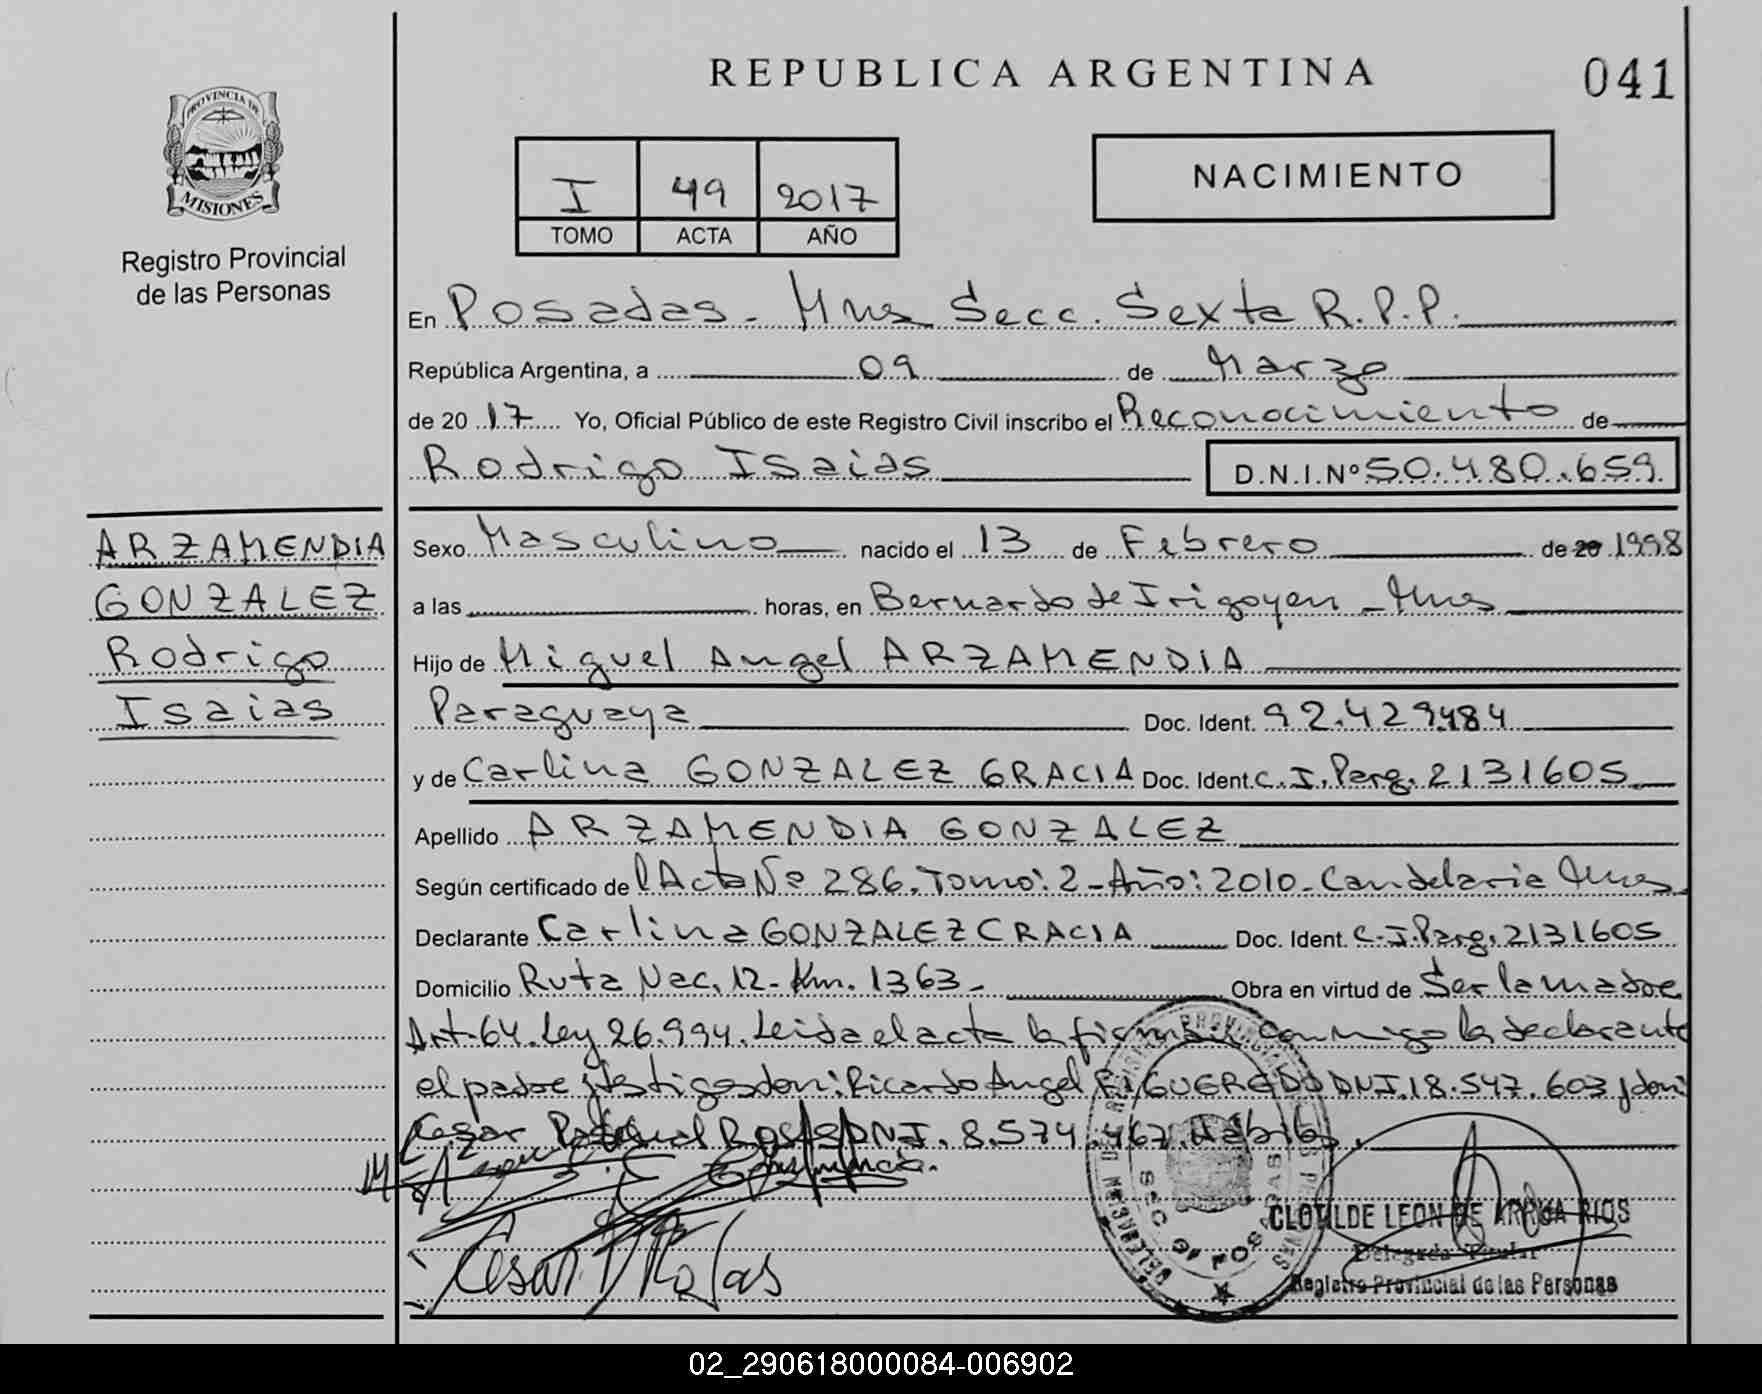 REPUBLICA ARGENTINA
041
PROVINCIA DE
MISIONES
Registro Provincial
de las Personas
I 49 2017
TOMO ACTA AÑO
NACIMIENTO
En Posadas - Mnes Secc. Sexta R.P.P.
República Argentina, a 09 de Marzo
de 20 17 Yo, Oficial Público de este Registro Civil inscribo el Reconocimiento de
Rodrigo Isaias D.N.I.Nº 50.480.659
ARZAMENDIA
GONZALEZ
Rodrigo
Isaias
Sexo Masculino nacido el 13 de Febrero de 20 1998
a las horas, en Bernardo de Irigoyen - Mnes
Hijo de Miguel Angel ARZAMENDIA
Paraguaya Doc. Ident. 92.429484
y de Carlina GONZALEZ GRACIA Doc. Ident. C.I. Parg. 2131605
Apellido ARZAMENDIA GONZALEZ
Según certificado de l Acta Nº 286. Tomo: 2 - Año: 2010 - Candelaria Mnes
Declarante Carlina GONZALEZ CRACIA Doc. Ident. C.I. Parg. 2131605
Domicilio Ruta Nac. 12 - Km. 1363 - Obra en virtud de Ser la madre
Art. 64. Ley 26.994. Leida el acta la firman conmigo la declarante
el padre y testigos don: Ricardo Angel FIGUEREDO DNI. 18.547.603 y don:
Cesar Pascual Rojas DNI. 8.574.467. Habiles.
Cesar P Rojas
CLOTILDE LEON DE ARRUA RIOS
Delegada Titular
Registro Provincial de las Personas
02_290618000084-006902